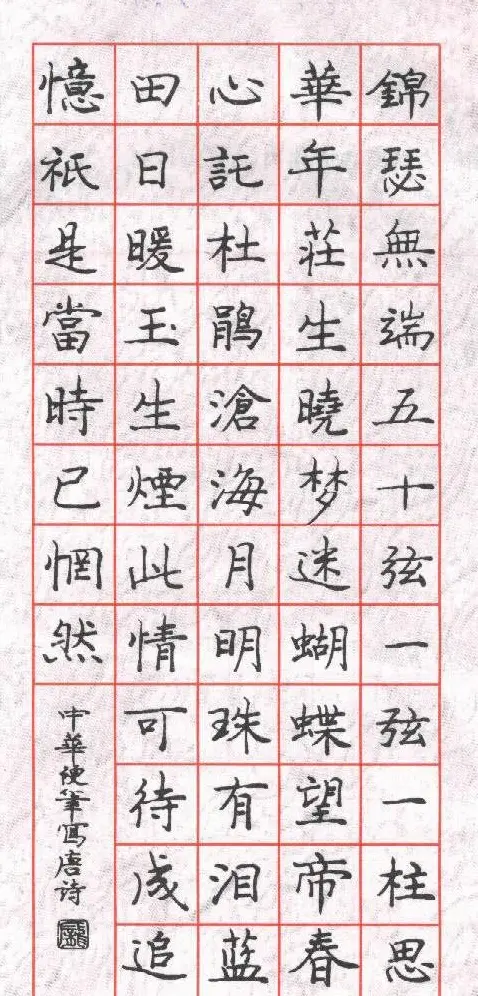 錦瑟無端五十弦一弦一柱思
華年莊生曉梦迷蝴蝶望帝春
心託杜鵑滄海月明珠有泪蓝
田日暖玉生煙此情可待成追
憶衹是當時已惘然
中華硬筆寫唐诗